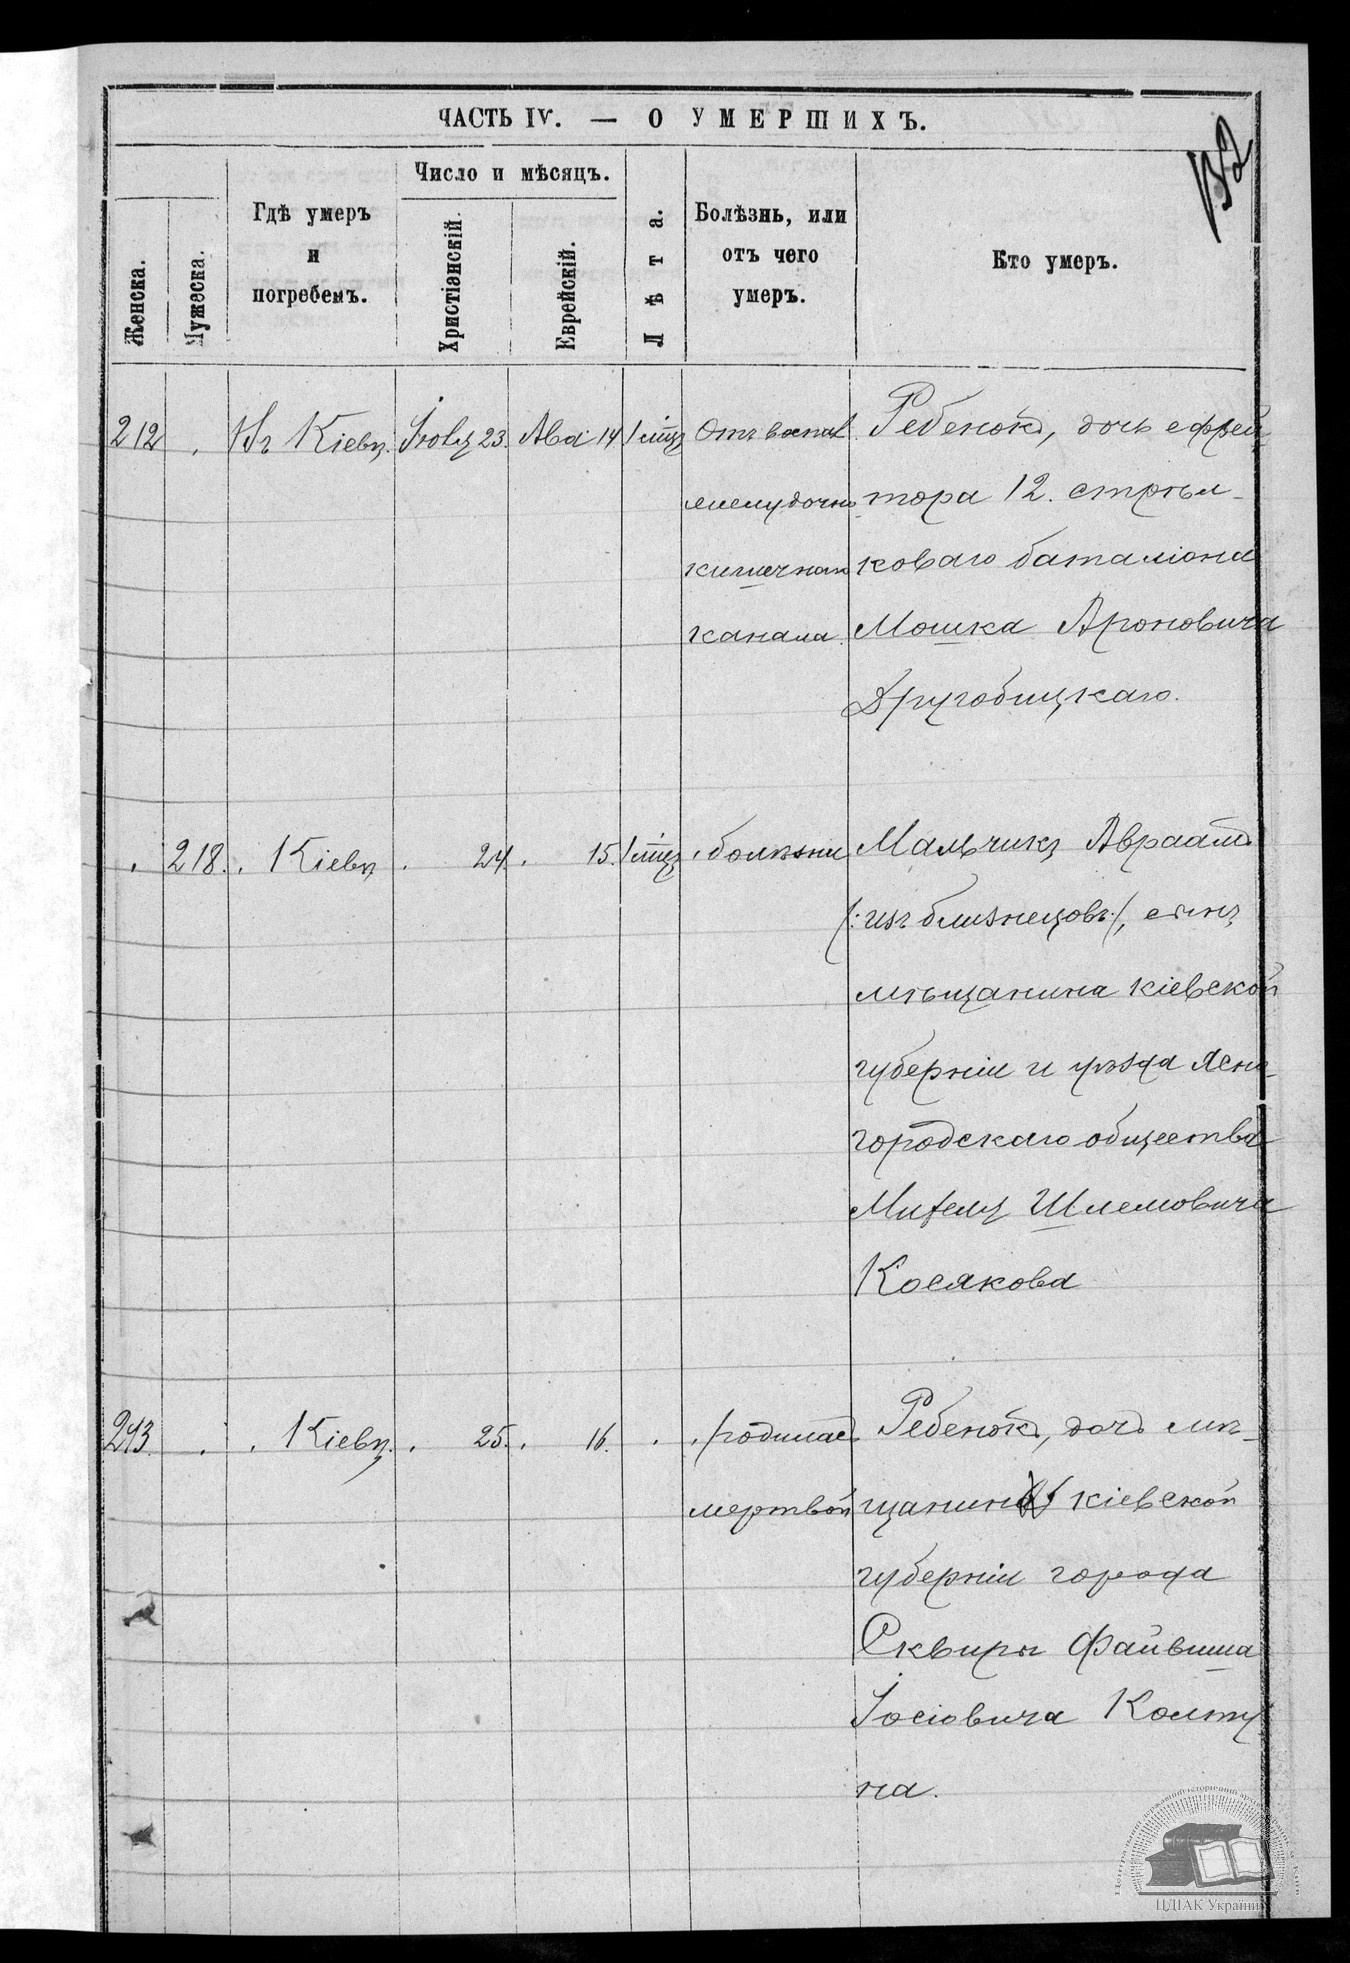 ЧАСТЬ IV. — О УМЕРШИХЪ.
132
Женска.
Мужеска.
Гдѣ умеръ
и
погребенъ.
Число и мѣсяцъ.
Христіанскій.
Еврейскій.
Лѣта.
Болѣзнь, или
отъ чего
умеръ.
Кто умеръ.
212 . Въ Кіевѣ. Іюля 23. Ава 14 1 мѣц Отъ воспал Ребенокъ, дочь ефрей
желудочно тора 12. стрѣл-
кишечнаго коваго баталіона
канала. Мошка Ароновича
Другобицкаго.
. 218. . Кіевѣ . 24. . 15. 1 мѣц . болѣзни Мальчикъ Авраамъ
/:изъ близнецовъ:/, сынъ
мѣщанина кіевской
губерніи и уѣзда Ясно-
городскаго общества
Шлемовича
Косякова
213. . . Кіевѣ. . 25. . 16. . . родилась Ребенокъ, дочь мѣ-
мертвой щанина кіевской
губерніи города
Сквиры Файвиша
Іосіовича Колту
на.
ЦДІАК України